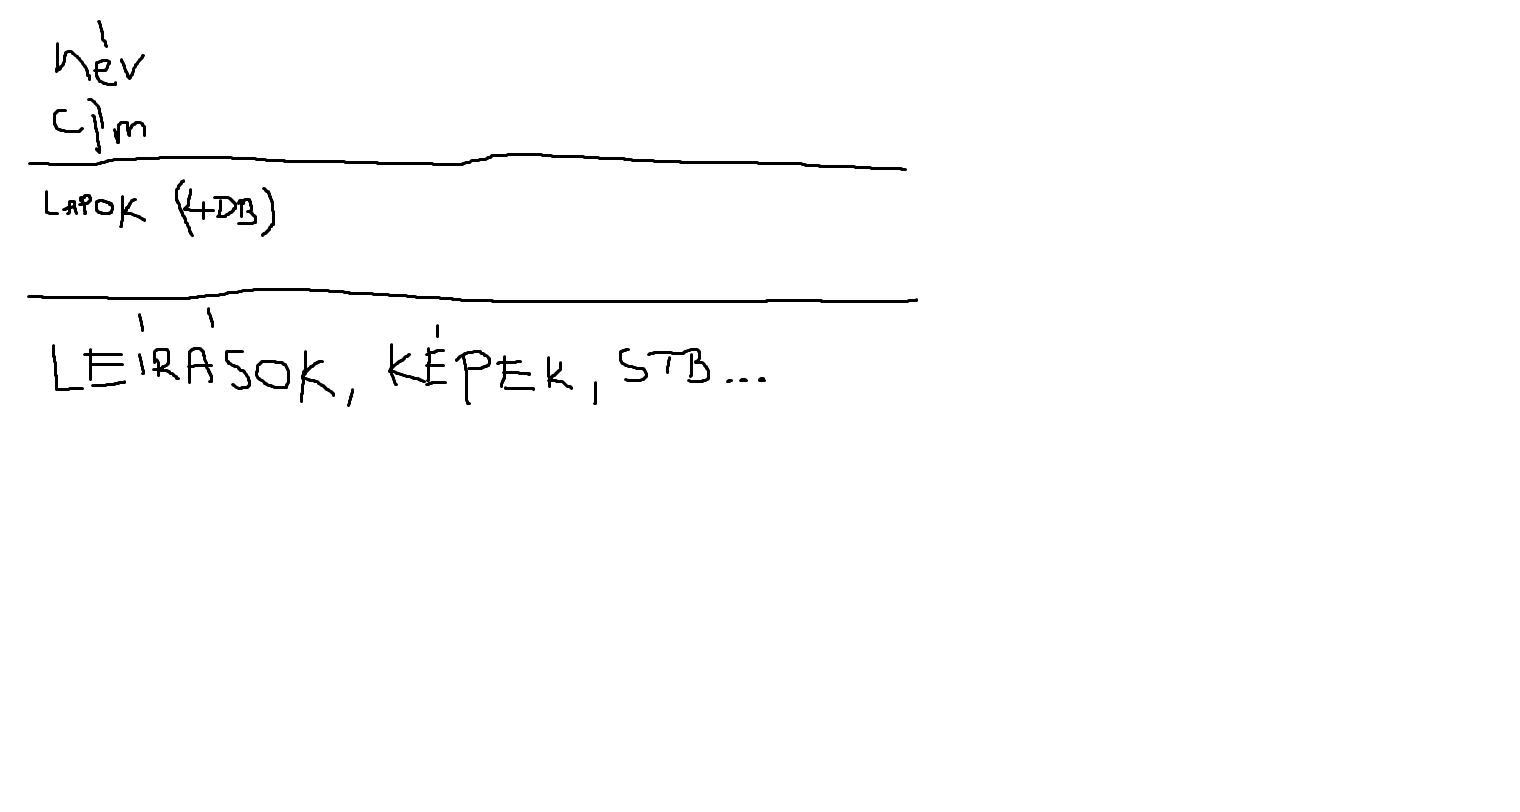 név
cím
LAPOK (4DB)
LEÍRÁSOK, KÉPEK, STB...